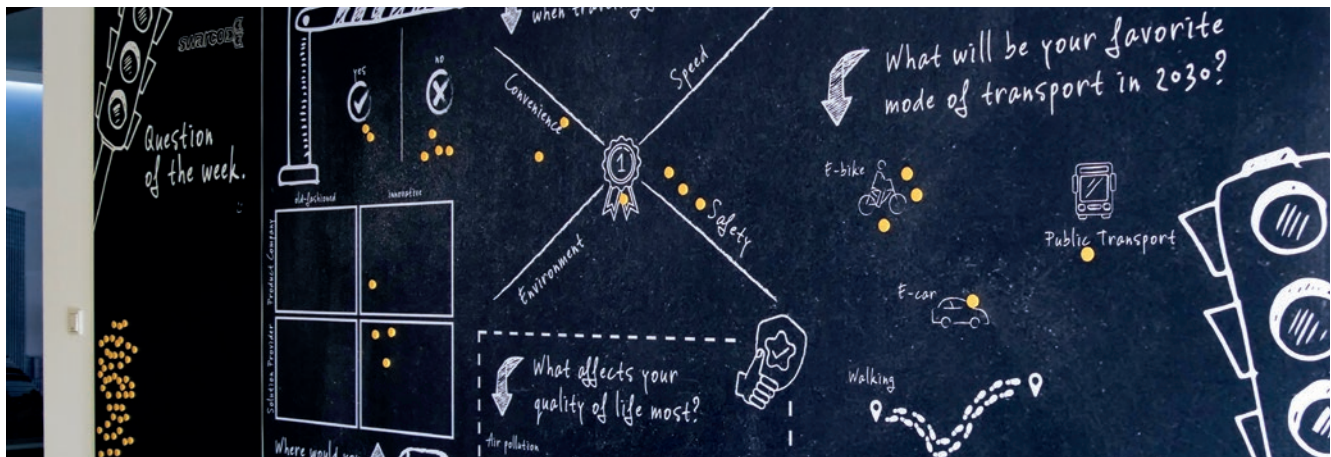 swarco
Question
of the week.
yes
no
old-fashioned
innovative
Product Company
Solution Provider
Where would you
when traveling
Convenience
Speed
1
Environment
Safety
What affects your
quality of life most?
Air pollution
What will be your favorite
mode of transport in 2030?
E-bike
Public Transport
E-car
Walking